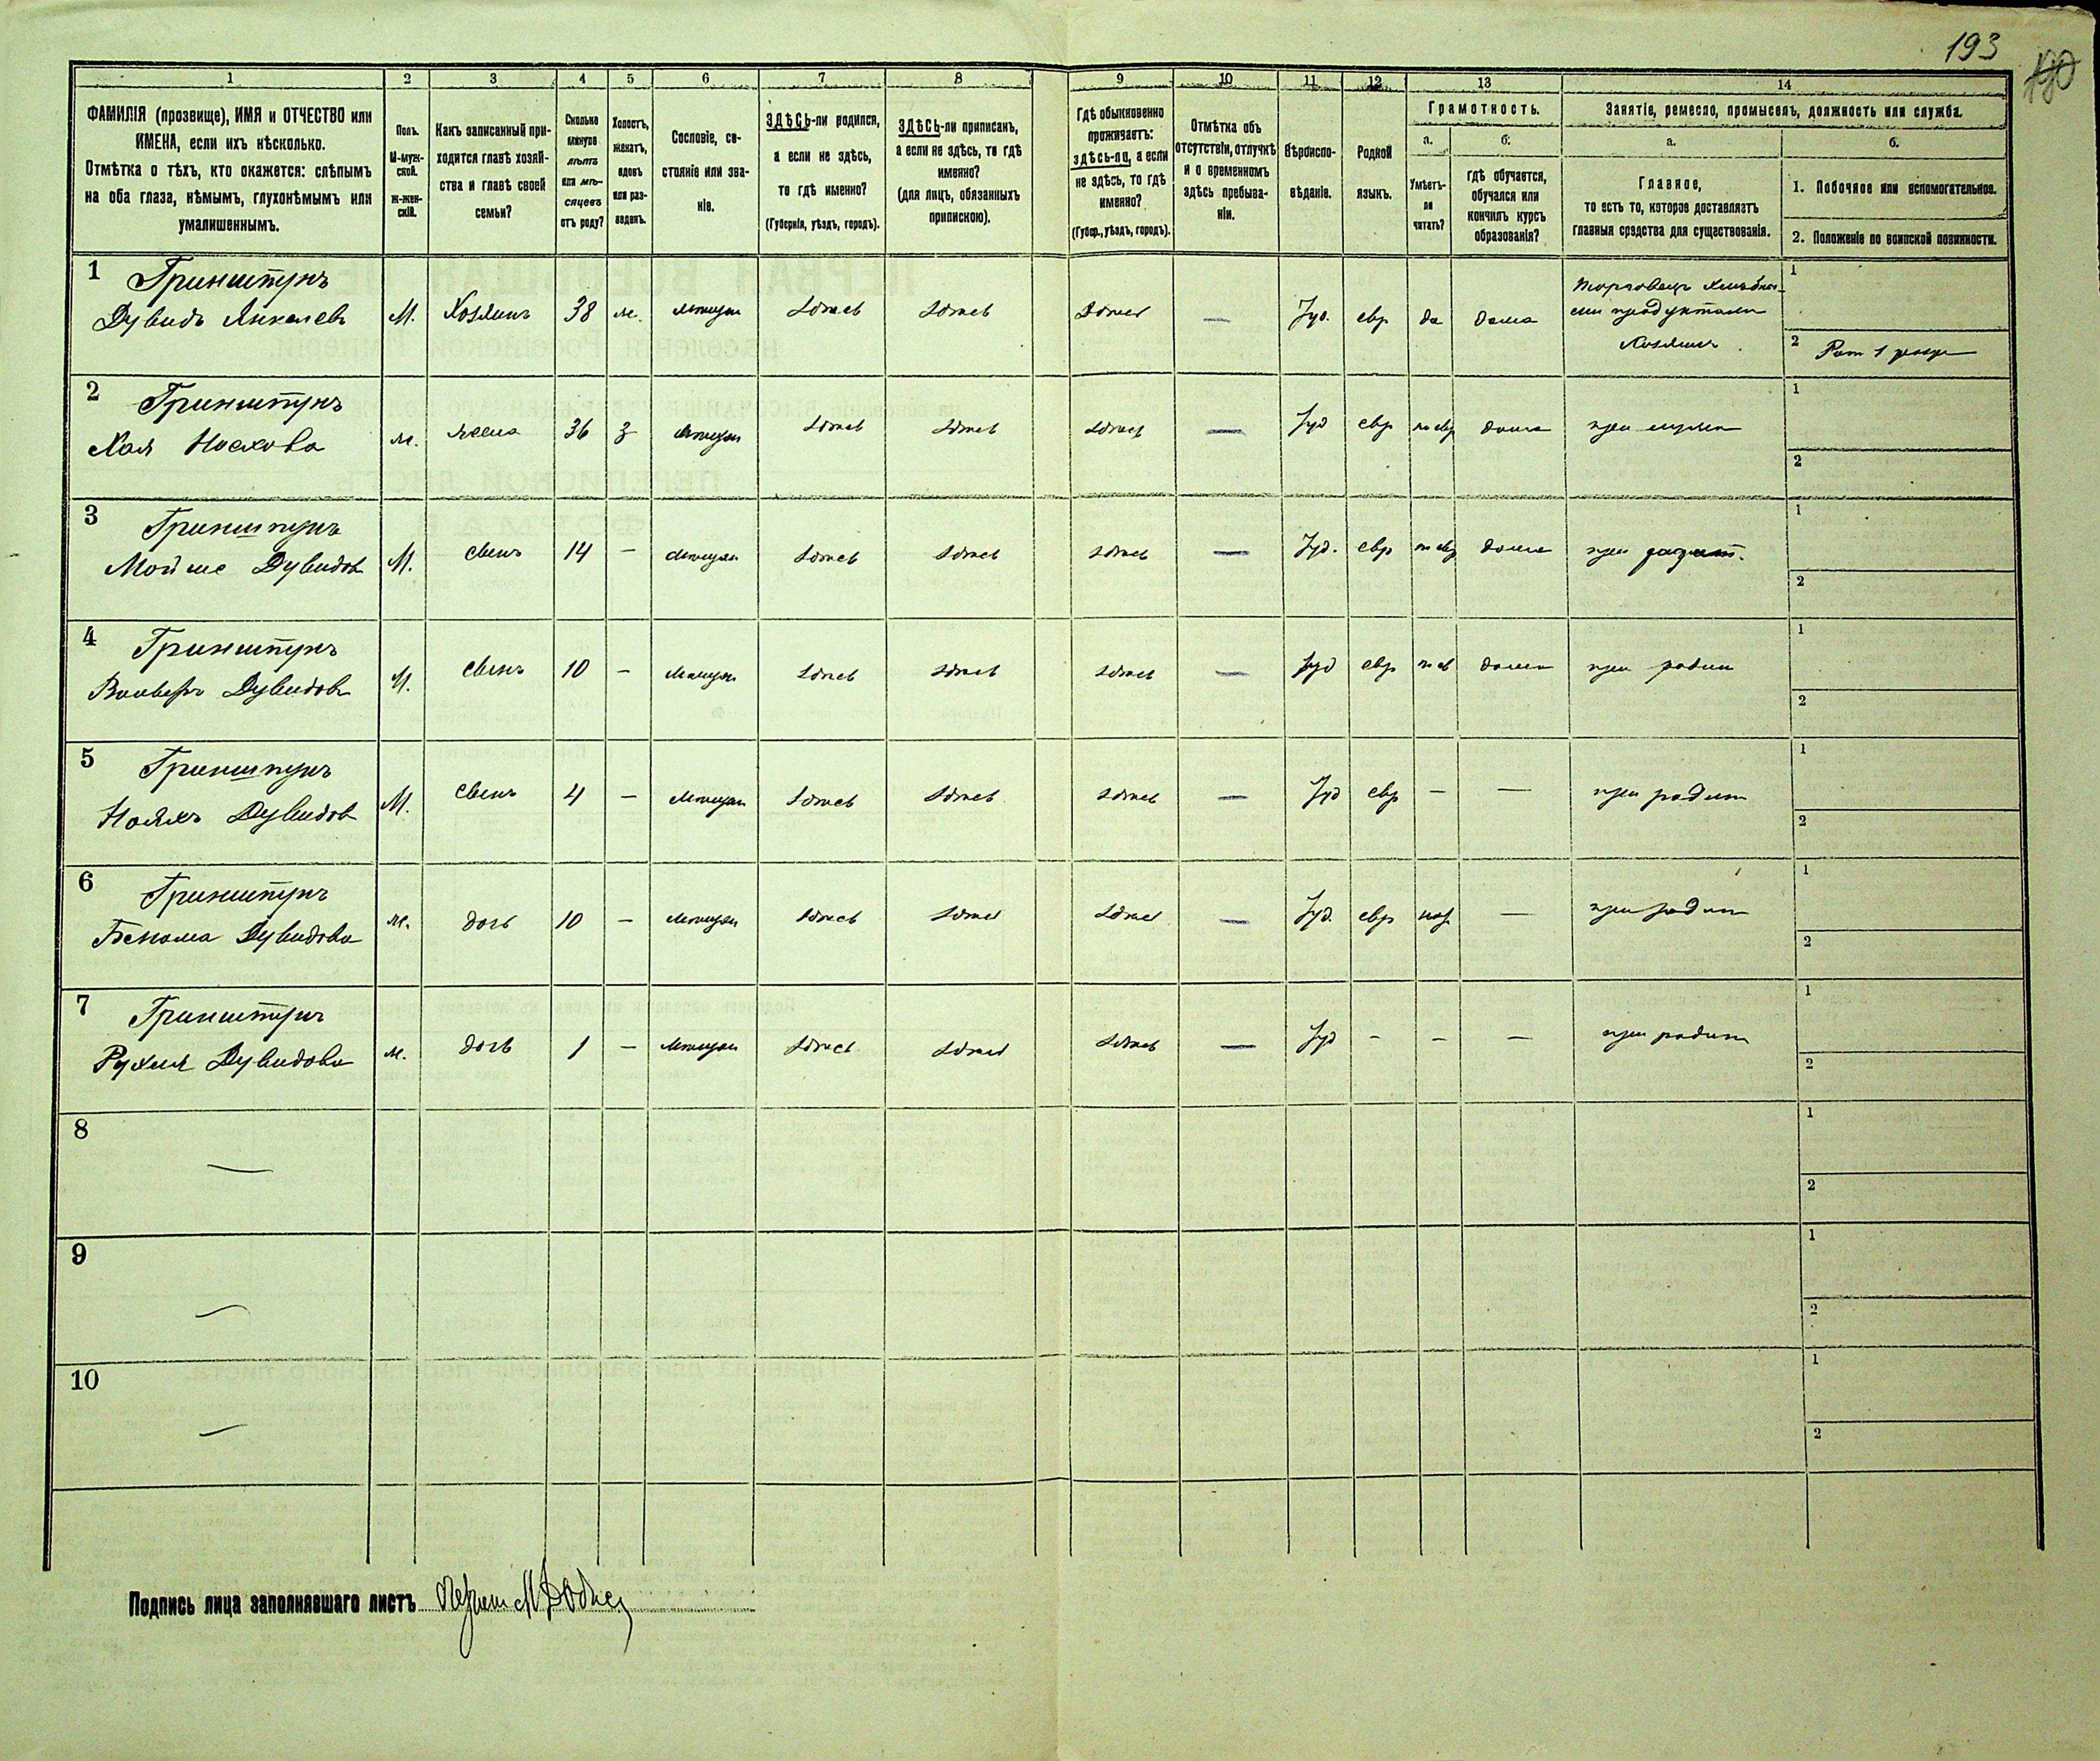 193
190
1 2 3 4 5 6 7 8 9 10 11 12 13 14
ФАМИЛІЯ (прозвище), ИМЯ и ОТЧЕСТВО или
ИМЕНА, если ихъ нѣсколько.
Отмѣтка о тѣхъ, кто окажется: слѣпымъ
на оба глаза, нѣмымъ, глухонѣмымъ или
умалишеннымъ.
Полъ.
М-муж-
ской.
Ж-жен-
скій.
Какъ записанный при-
ходится главѣ хозяй-
ства и главѣ своей
семьи?
Сколько
минуло
лѣтъ
или мѣ-
сяцевъ
отъ роду?
Холостъ,
женатъ,
вдовъ
или раз-
веденъ.
Сословіе, со-
стояніе или зва-
ніе.
ЗДѢСЬ-ли родился,
а если не здѣсь,
то гдѣ именно?
(Губернія, уѣздъ, городъ).
ЗДѢСЬ-ли приписанъ,
а если не здѣсь, то гдѣ
именно?
(для лицъ, обязанныхъ
припискою).
Гдѣ обыкновенно
проживаетъ:
здѣсь-ли, а если
не здѣсь, то гдѣ
именно?
(Губер., уѣздъ, городъ).
Отмѣтка объ
отсутствіи, отлучкѣ
и о временномъ
здѣсь пребыва-
ніи.
Вѣроиспо-
вѣданіе.
Родной
языкъ.
Грамотность.
а.
Умѣетъ-
ли
читать?
б.
гдѣ обучается,
обучался или
кончилъ курсъ
образованія?
Занятіе, ремесло, промыселъ, должность или служба.
а.
Главное,
то есть то, которое доставляетъ
главныя средства для существованія.
б.
1. Побочное или вспомогательное.
2. Положеніе по воинской повинности.
1 Гринштунъ
Дувидъ Янкелевъ М. Хозяинъ 38 ж. мѣщан здѣсь здѣсь здѣсь — Іуд. евр да дома
хозяинъ
1
2
2 Гринштунъ
Хая ж. жена 36 з мѣщан здѣсь здѣсь здѣсь — Іуд евр дома при мужѣ
1
2
3 Гриншпунъ
Мойше Дувидов М. сынъ 14 — мѣщан здѣсь здѣсь здѣсь — Іуд. евр дома при родит.
1
2
4 Гринштунъ
Дувидовъ М. сынъ 10 — мѣщан здѣсь здѣсь здѣсь — Іуд евр дома при родит
1
2
5 Гриншпунъ
Дувидов М. сынъ 4 — мѣщан здѣсь здѣсь здѣсь — Іуд евр — — при родит
1
2
6 Гринштунъ
Дувидова ж. дочь 10 — мѣщан здѣсь здѣсь здѣсь — Іуд. евр — при родит
1
2
7 Гринштунъ
Рухля Дувидова ж. дочь 1 — мѣщан здѣсь здѣсь здѣсь — Іуд - - — при родит
1
2
8 —
1
2
9 —
1
2
10 —
1
2
Подпись лица заполнявшаго листъ